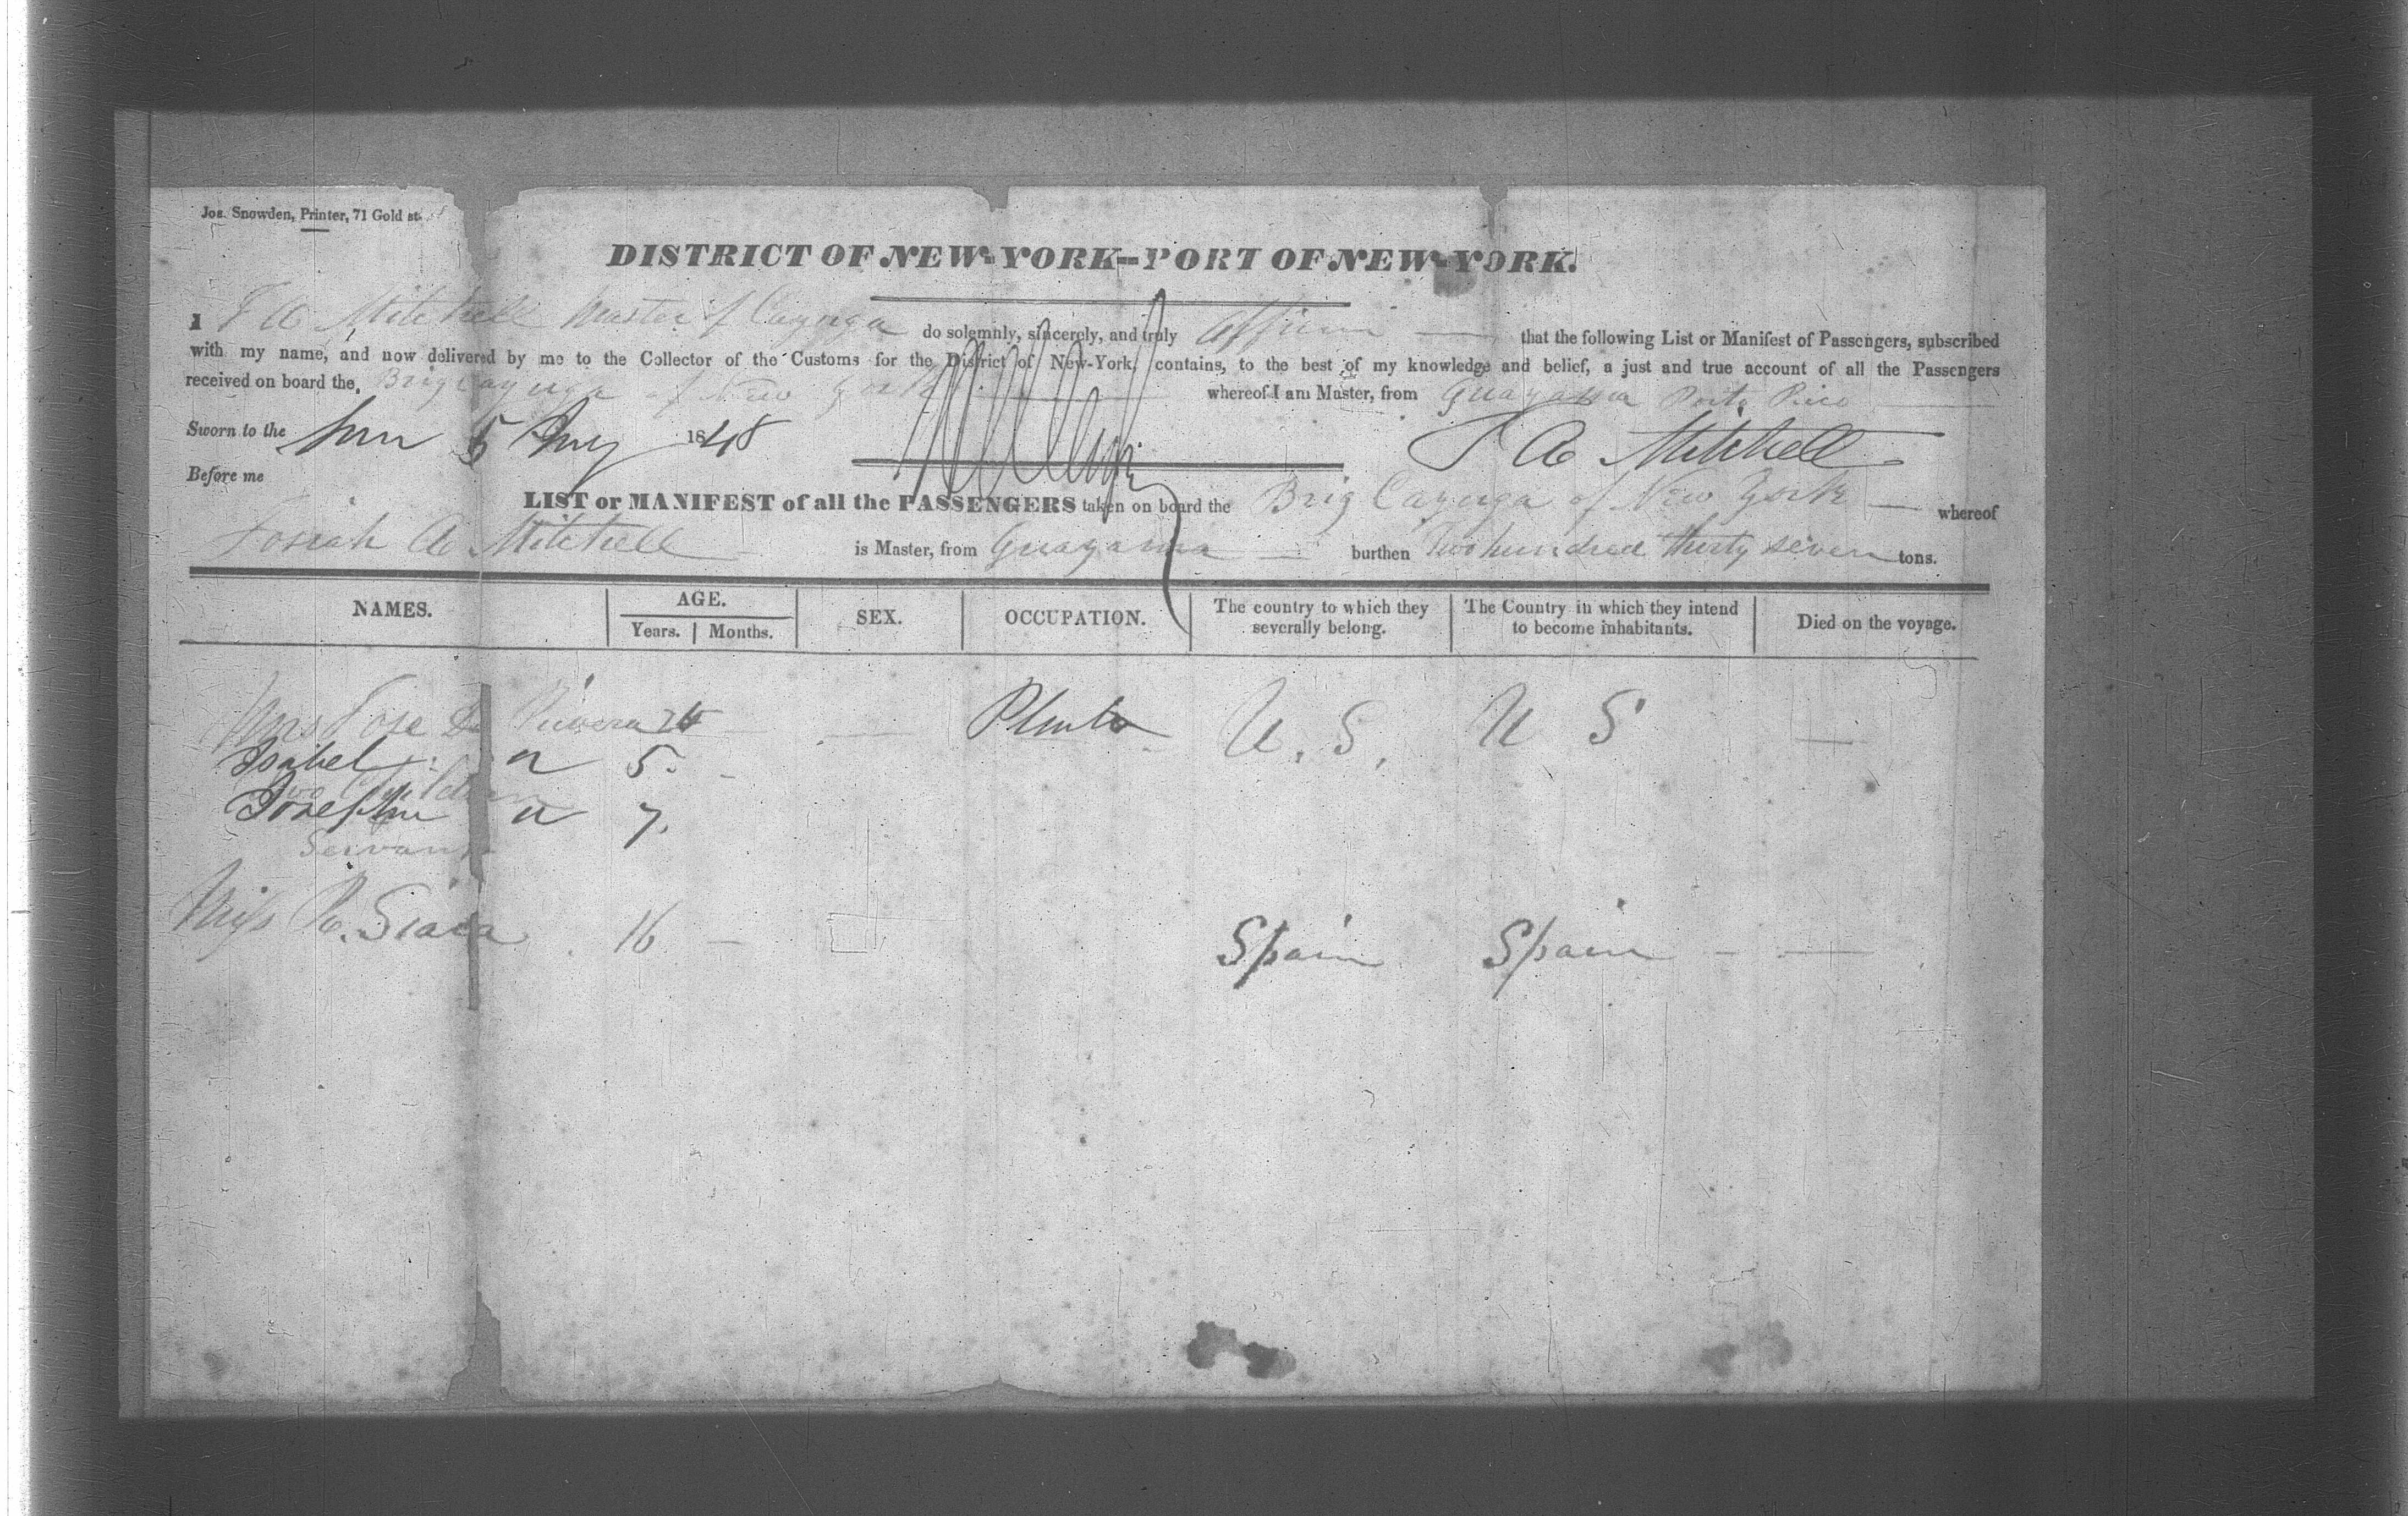 Jos. Snowden, Printer, 71 Gold st.
DISTRICT OF NEW-YORK--PORT OF NEW-YORK.
I J A Mitchell Master of Cayuga do solemnly, sincerely, and truly affirm that the following List or Manifest of Passengers, subscribed
with my name, and now delivered by me to the Collector of the Customs for the District of New-York, contains, to the best of my knowledge and belief, a just and true account of all the Passengers
received on board the Brig Cayuga of New York whereof I am Master, from Guayama Porto Rico
Sworn to the 5 Aug 1848 J A Mitchell
Before me
LIST or MANIFEST of all the PASSENGERS taken on board the Brig Cayuga of New York whereof
Josiah A Mitchell is Master, from Guayama burthen Two hundred thirty seven tons.
NAMES. AGE. SEX. OCCUPATION. The country to which they severally belong. The Country in which they intend to become inhabitants. Died on the voyage.
Years. Months.
Mrs Jose De Rivera U. S. U S
Isabel " 5.
Two Children
Josephine " 7.
Servant
Miss R. 16 Spain Spain